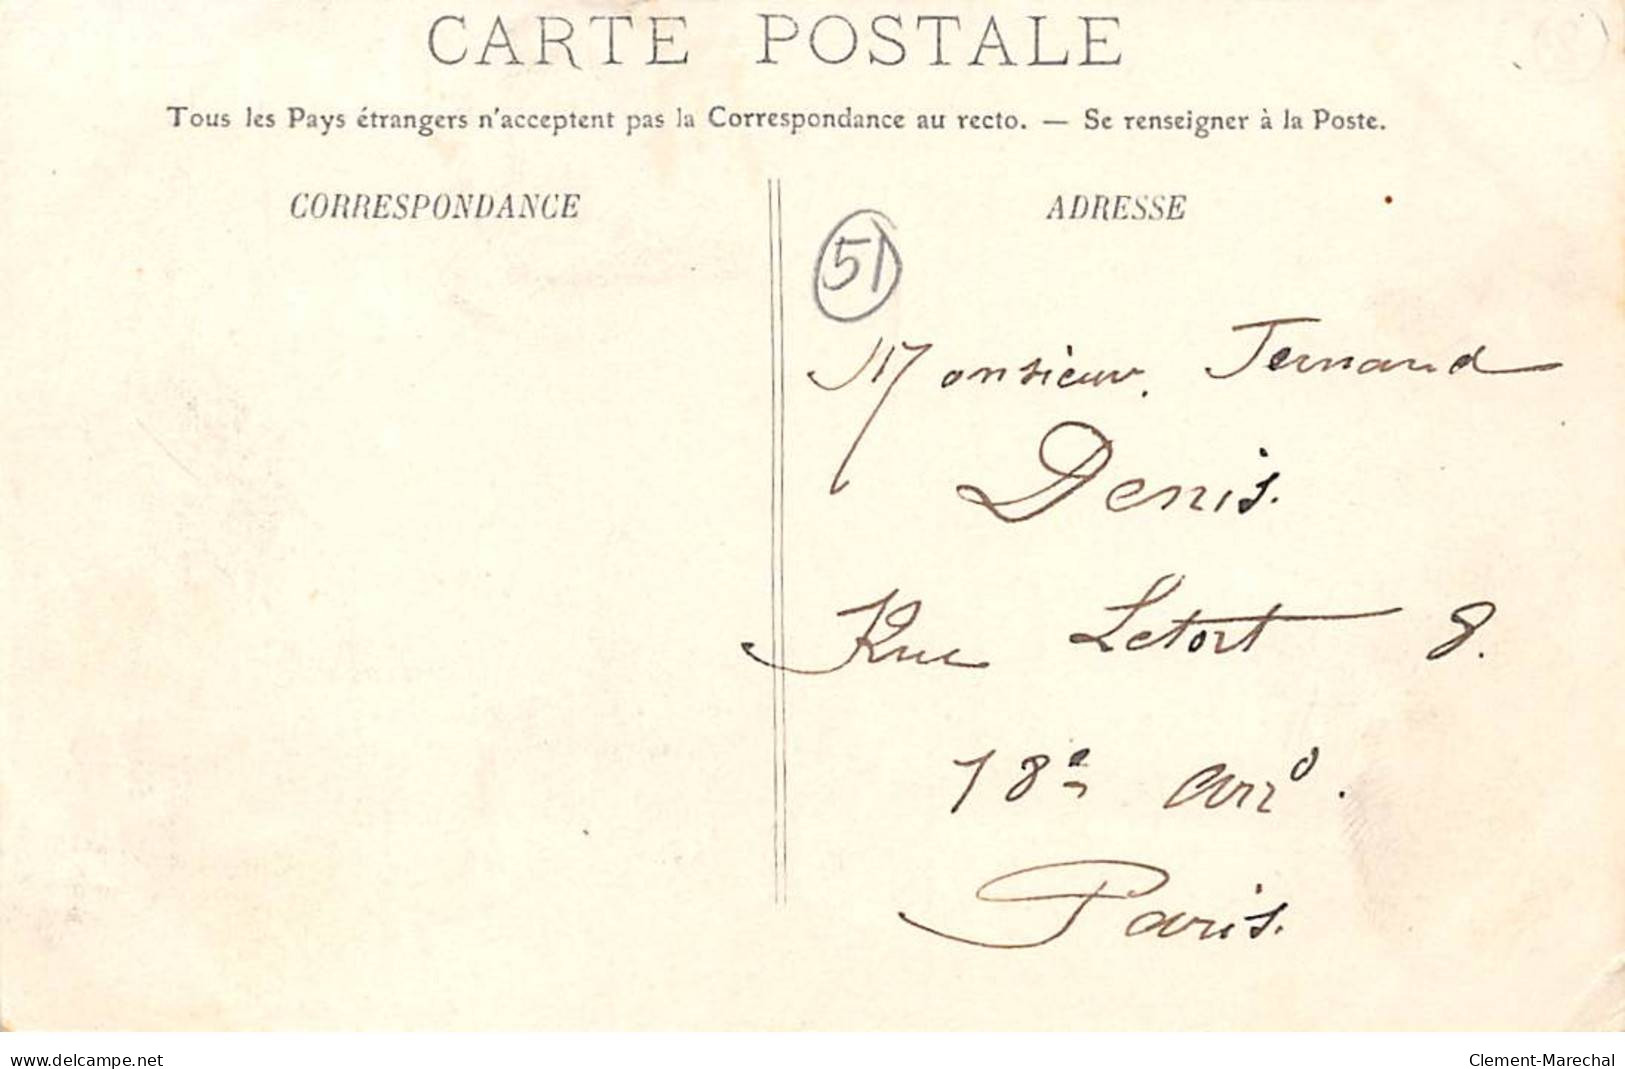 CARTE POSTALE
Tous les Pays étrangers n'acceptent pas la Correspondance au recto. — Se renseigner à la Poste.
CORRESPONDANCE
ADRESSE
51
Monsieur. Fernand
Denis.
Rue Letort 8.
18e arro.
Paris.
www.delcampe.net
Clement-Marechal